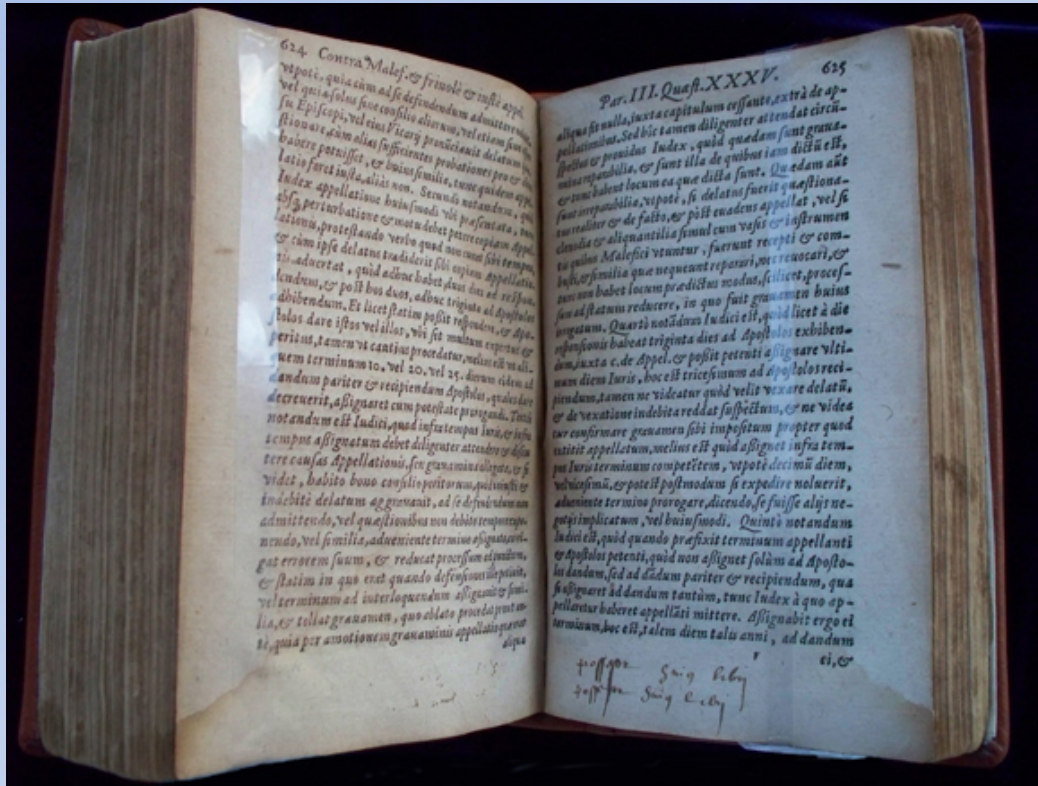 624 Contra Malef. & friuolè & iustè appel.
vtpotè, quia cùm ad se defendendum admittere
vel quia solus sine consilio aliorum, vel etiam sine
su Episcopi, vel eius Vicarij pronũciauit delatum
stionare, cùm alias sufficientes probationes pro &
habere potuisset, & huius similia, tunc quidem appel-
latio foret iusta, aliàs non. Secundò notandum, quòd
Iudex appellatione huiusmodi vbi præsentata,
absq; perturbatione & motu debet petere copiam Appel-
lationis, protestando verbo quòd non currat sibi tempus,
& cùm ipse delatus tradiderit sibi copiam Appellatio-
nis, aduertat, quòd adhuc habet duos dies ad respon-
dendum, & post hos duos, adhuc triginta ad Apostolos
adhibendum. Et licet statim possit respondere, & Apo-
stolos dare istos vel illos, vbi sit multum expertus &
peritus, tamen vt cautius procedatur, melius est vt ali-
quem terminum 10. vel 20. vel 25. dierum eidem ad
dandum pariter & recipiendum Apostolos, quales dare
decreuerit, aßignaret cum potestate prorogandi. Tertiò
notandum est Iudici, quòd infra tempus Iuris, & infra
tempus aßignatum debet diligenter attendere & discu-
tere causas Appellationis, seu grauaminis allegatas, & si
videt, habito bono consilio peritorum, quòd iniustè &
indebitè delatum aggrauauit, ad se defendendum non
admittendo, vel quæstionibus non debito tempore expo-
nendo, vel similia, adueniente termino aßignato, corri-
gat errorem suum, & reducat processum ad punctum,
& statim in quo erat quando defensionem ille petiuit,
vel terminum ad interloquendum aßignauit & simi-
lia, & tollat grauamen, quo ablato procedat prout an-
tè, quia per amotionem grauaminis appellatio quæ erat
aliqua
Par. III. Quæst. XXXV. 625
aliqua sit nulla, iuxta capitulum cessante, extrà de ap-
pellationibus. Sed hîc tamen diligenter attendat circũ-
spectus & prouidus Iudex, quòd quædam sunt graua-
mina reparabilia, & sunt illa de quibus iam dictũ est,
& tunc habent locum ea quæ dicta sunt. Quædam aũt
sunt irreparabilia, vtpotè, si delatus fuerit quæstiona-
tus realiter & de facto, & pòst euadens appellat, vel si
clenodia & aliquantilia simul cum vasis & instrumen
tis quibus Malefici vtuntur, fuerunt recepti & com-
busti, & similia quæ nequeunt reparari, nec reuocari, &
tunc non habet locum prædictus modus, scilicet, proces-
sum ad statum reducere, in quo fuit grauamen huius
irrogatum. Quartò notãdum Iudici est, quòd licet à die
responsionis habeat triginta dies ad Apostolos exhiben-
dum, iuxta c. de Appel. & possit petenti aßignare vlti-
mum diem Iuris, hoc est tricesimum ad apostolos reci-
piendum, tamen ne videatur quòd velit vexare delatũ,
& de vexatione indebita reddat suspectum, & ne videa
tur confirmare grauamen sibi impositum propter quod
extitit appellatum, melius est quòd aßignet infra tem-
pus Iuris terminum competẽtem, vtpotè decimũ diem,
vel vicesimũ, & potest postmodum si expedire noluerit,
adueniente termino prorogare, dicendo, se fuisse alijs ne-
gotijs implicatum, vel huiusmodi. Quintò notandum
Iudici est, quòd quando præfixit terminum appellanti
& Apostolos petenti, quòd non aßignet solùm ad Aposto-
los dandum, sed ad dãdum pariter & recipiendum, quia
si aßignaret ad dandum tantùm, tunc Iudex à quo ap-
pellaretur haberet appellãti mittere. Aßignabit ergo ei
terminum, hoc est, talem diem talis anni, ad dandum
ei, &